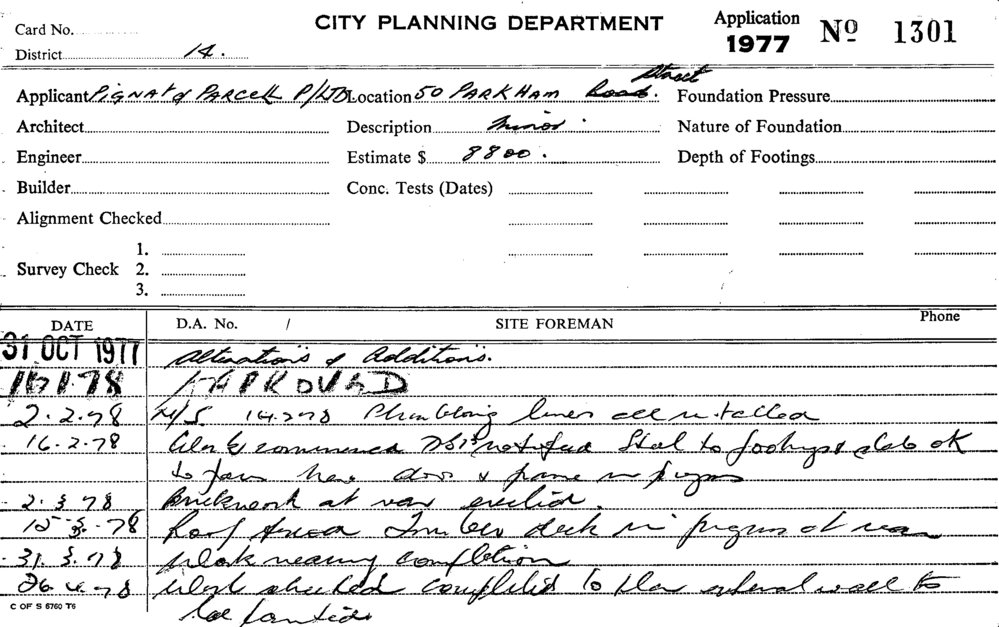 CITY PLANNING DEPARTMENT
Card No.
District 14.
Application
1977
Nº 1301
Applicant PIGNAT & PARCELL P/LTD Location 50 PARKHAM Road. Street Foundation Pressure
Architect Description Minor. Nature of Foundation
Engineer Estimate $ 8800. Depth of Footings
Builder Conc. Tests (Dates)
Alignment Checked
Survey Check
1.
2.
3.
DATE D.A. No. / SITE FOREMAN Phone
31 OCT 1977 Alterations & Additions.
78 APPROVED
2.2.78 N/S. 14.2.78 Plumbing lines all installed
16.2.78 Work commenced not Steel to footings & slab OK
to door & frame in
2.3.78 Brickwork at rear erected.
15.3.78 Roof Timber deck in progress at rear
31.3.78 Work nearing completion
26.4.78 Work checked completed to plan external wall to
be painted
C OF S 6760 T6